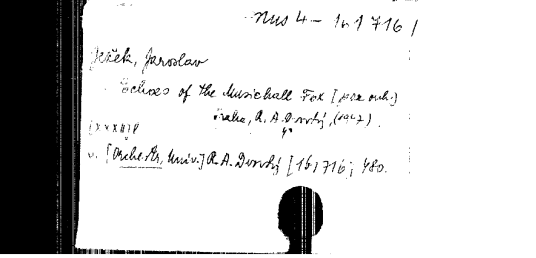 Mus 4 - 1n 1716 /
Ježek, Jaroslav
Echoes of the Musichall Fox [pro orch.]
Praha, R. A. Dvorský, (1947).
4°
[XXXII] P
v. [Orchestr, Univ.] R. A. Dvorský [16/716; 480.